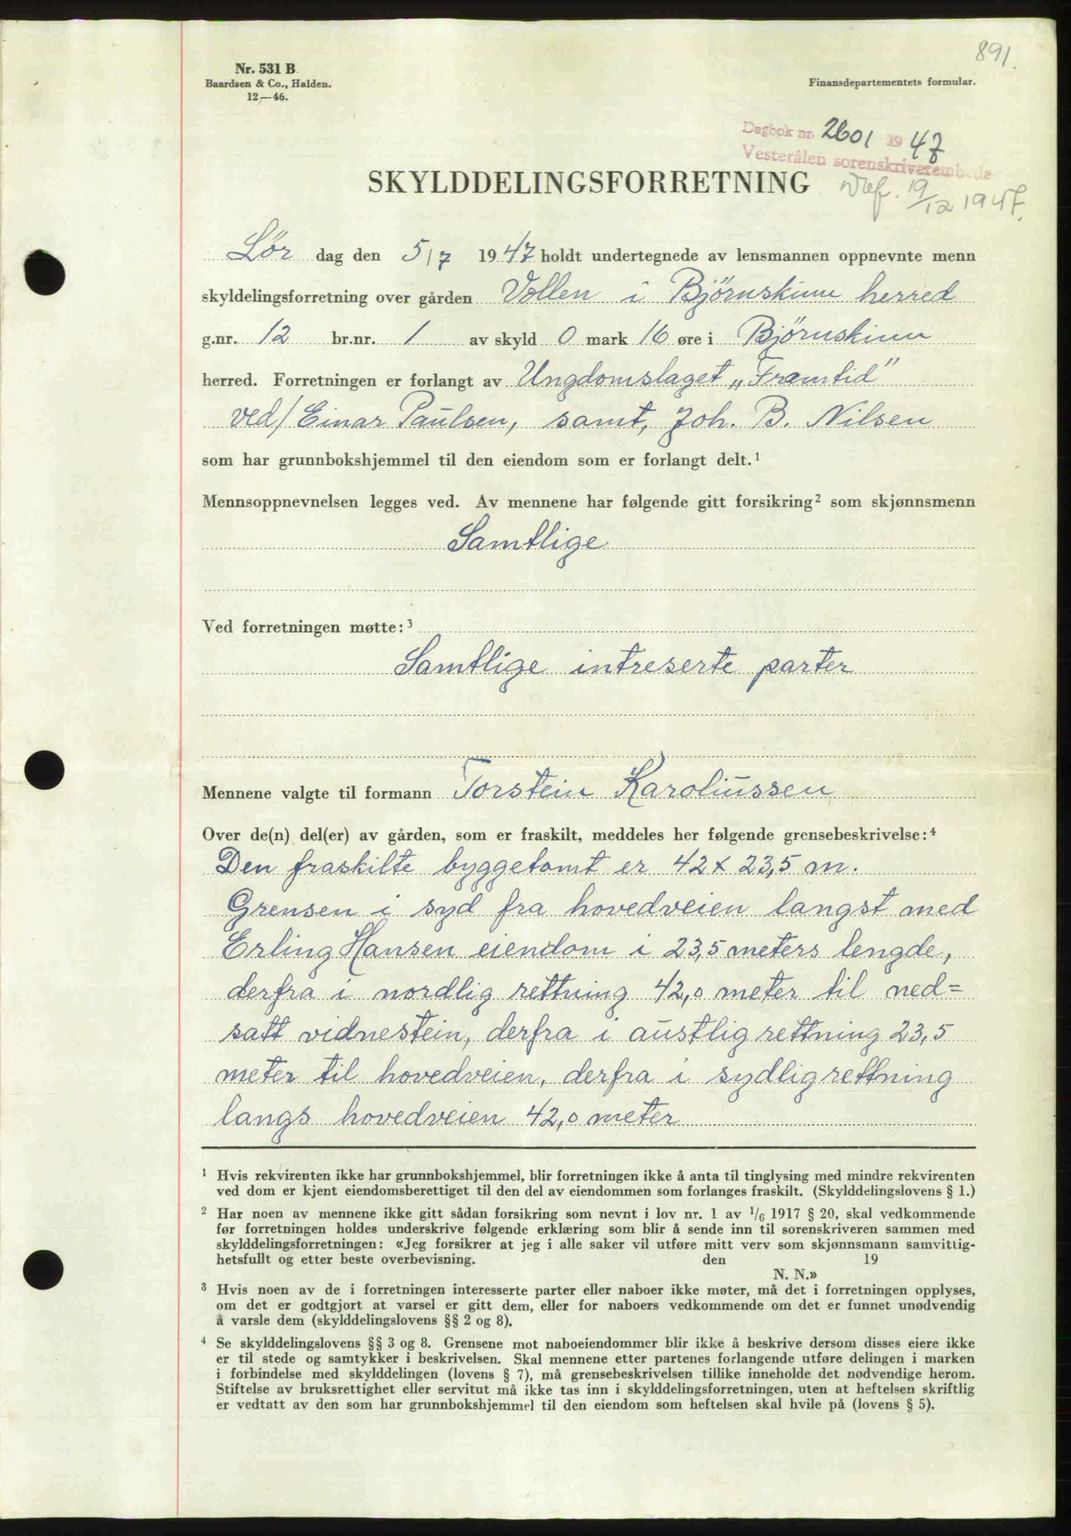 891.
Nr. 531 B.
Baardsen & Co., Halden.
12—46.
Finansdepartementets formular.
Dagbok nr. 2601 1947
Vesterålen sorenskriverembede
19/12 1947.
SKYLDDELINGSFORRETNING
Lør dag den 5/7 1947 holdt undertegnede av lensmannen oppnevnte menn
skyldelingsforretning over gården Vollen i Bjørnskinn herred
g.nr. 12 br.nr. 1 av skyld 0 mark 16 øre i Bjørnskinn
herred. Forretningen er forlangt av Ungdomslaget „Framtid”
ved/ Einar Paulsen, samt, Joh. B. Nilsen
som har grunnbokshjemmel til den eiendom som er forlangt delt.¹
Mennsoppnevnelsen legges ved. Av mennene har følgende gitt forsikring² som skjønnsmenn
Samtlige
Ved forretningen møtte:³
Samtlige intreserte parter
Mennene valgte til formann Torstein Karoliussen
Over de(n) del(er) av gården, som er fraskilt, meddeles her følgende grensebeskrivelse:⁴
Den fraskilte byggetomt er 42 x 23,5 m.
Grensen i syd fra hovedveien langst med
Erling Hansen eiendom i 23,5 meters lengde,
derfra i nordlig rettning 42,0 meter til ned=
satt vidnestein, derfra i austlig rettning 23,5
meter til hovedveien, derfra i sydlig rettning
langs hovedveien 42,0 meter
¹ Hvis rekvirenten ikke har grunnbokshjemmel, blir forretningen ikke å anta til tinglysing med mindre rekvirenten
ved dom er kjent eiendomsberettiget til den del av eiendommen som forlanges fraskilt. (Skylddelingslovens § 1.)
² Har noen av mennene ikke gitt sådan forsikring som nevnt i lov nr. 1 av 1/6 1917 § 20, skal vedkommende
før forretningen holdes underskrive følgende erklæring som blir å sende inn til sorenskriveren sammen med
skylddelingsforretningen: «Jeg forsikrer at jeg i alle saker vil utføre mitt verv som skjønnsmann samvittig-
hetsfullt og etter beste overbevisning. den 19
N. N.»
³ Hvis noen av de i forretningen interesserte parter eller naboer ikke møter, må det i forretningen opplyses,
om det er godtgjort at varsel er gitt dem, eller for naboers vedkommende om det er funnet unødvendig
å varsle dem (skylddelingslovens §§ 2 og 8).
⁴ Se skylddelingslovens §§ 3 og 8. Grensene mot naboeiendommer blir ikke å beskrive dersom disses eiere ikke
er til stede og samtykker i beskrivelsen. Skal mennene etter partenes forlangende utføre delingen i marken
i forbindelse med skylddelingen (lovens § 7), må grensebeskrivelsen tillike inneholde det nødvendige herom.
Stiftelse av bruksrettighet eller servitut må ikke tas inn i skylddelingsforretningen, uten at heftelsen skriftlig
er vedtatt av den som har grunnbokshjemmel til den eiendom som heftelsen skal hvile på (lovens § 5).